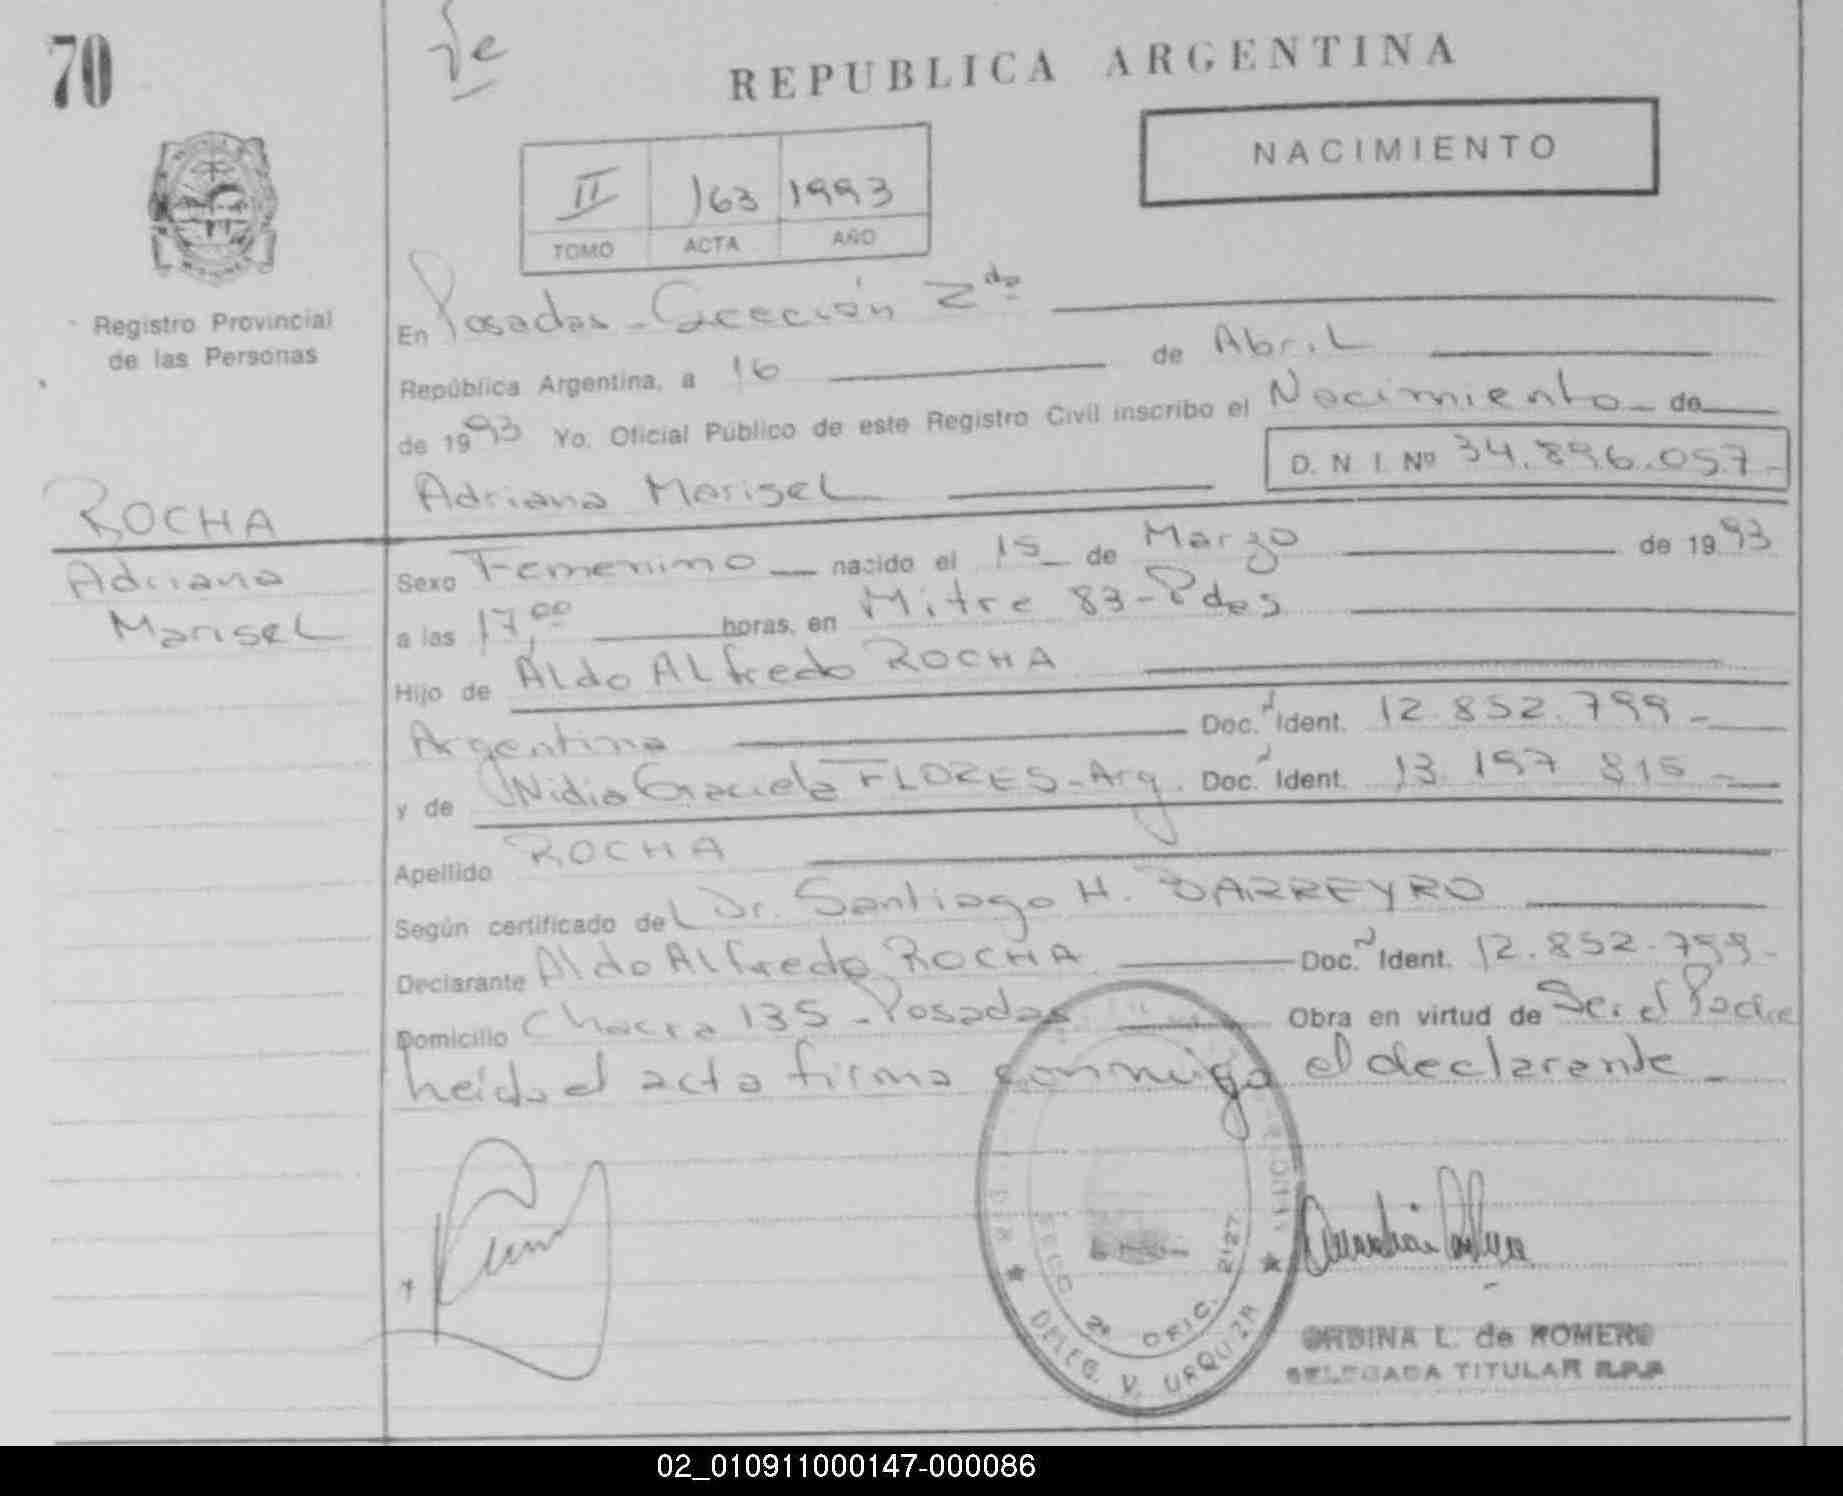 70
REPUBLICA ARGENTINA
NACIMIENTO
II 163 1993
TOMO ACTA AÑO
Registro Provincial
de las Personas
En Posadas - Sección 2da
República Argentina, a 16 de Abril
de 1993 Yo, Oficial Público de este Registro Civil inscribo el Nacimiento - de
D. N. I. Nº 34.896.057-
Adriana Marisel
ROCHA
Adriana
Marisel
Sexo Femenino nacido el 15 de Marzo de 1993
a las 17,00 horas, en Mitre 83 - Pdas
Hijo de Aldo Alfredo ROCHA
Argentina Doc. Ident. 12.852.799-
y de Nidia Graciela FLORES - Arg. Doc. Ident. 13.197.815-
Apellido ROCHA
Según certificado del Dr. Santiago H. BARREYRO
Declarante Aldo Alfredo ROCHA Doc. Ident. 12.852.799-
Domicilio Chacra 135 - Posadas Obra en virtud de Ser el Padre
Leída el acta firma conmigo el declarante -
SECC. 2ª OFIC. 2127
DELEG. V. URQUIZA
L. de ROMERO
DELEGADA TITULAR R.P.P
02_010911000147-000086